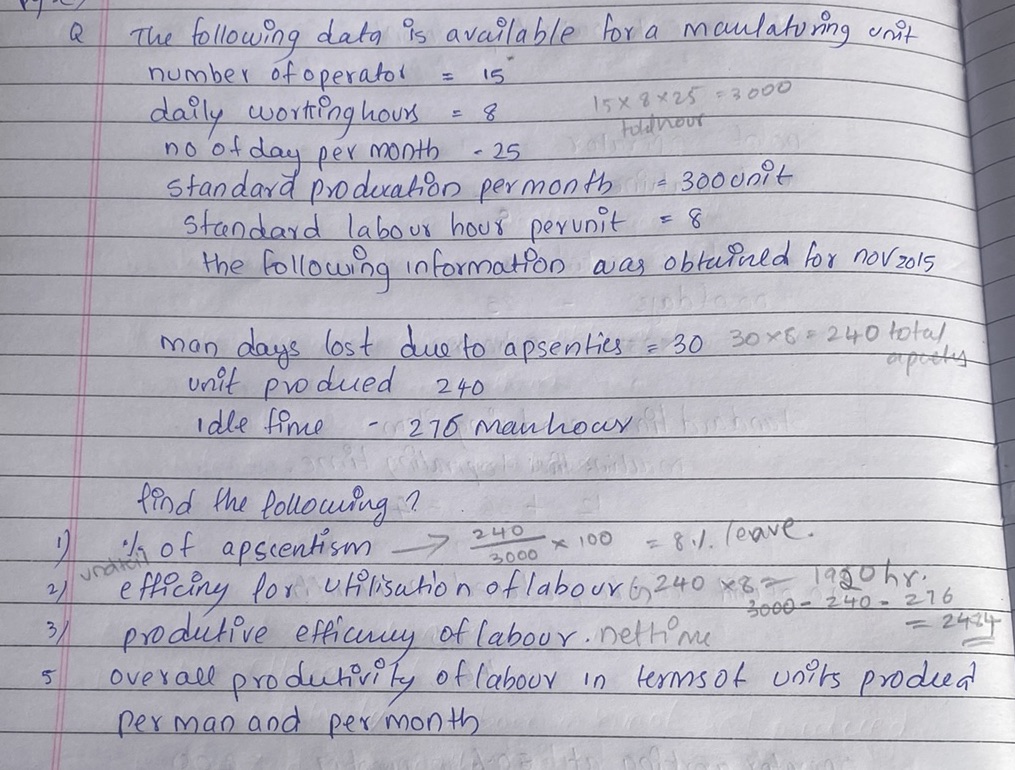 Q The following data is available for a maulaturing unit
number of operator = 15
daily working hours = 8 15 x 8 x 25 = 3000
total hour
no of day per month - 25
standard production per month = 300 unit
standard labour hour per unit = 8
the following information was obtained for nov 2015
man days lost due to apsenties = 30 30x8 = 240 total
unit produed 240
idle time - 276 manhour
find the following ?
1) % of apscentism → 240/3000 x 100 = 8% leave.
2) efficiny for utilisation of labour 240 x 8 = 1920 hr.
3000 - 240 - 276
= 2484
3) produtive efficiency of labour. net time
5 overall produtivity of labour in terms of units produed
per man and per month